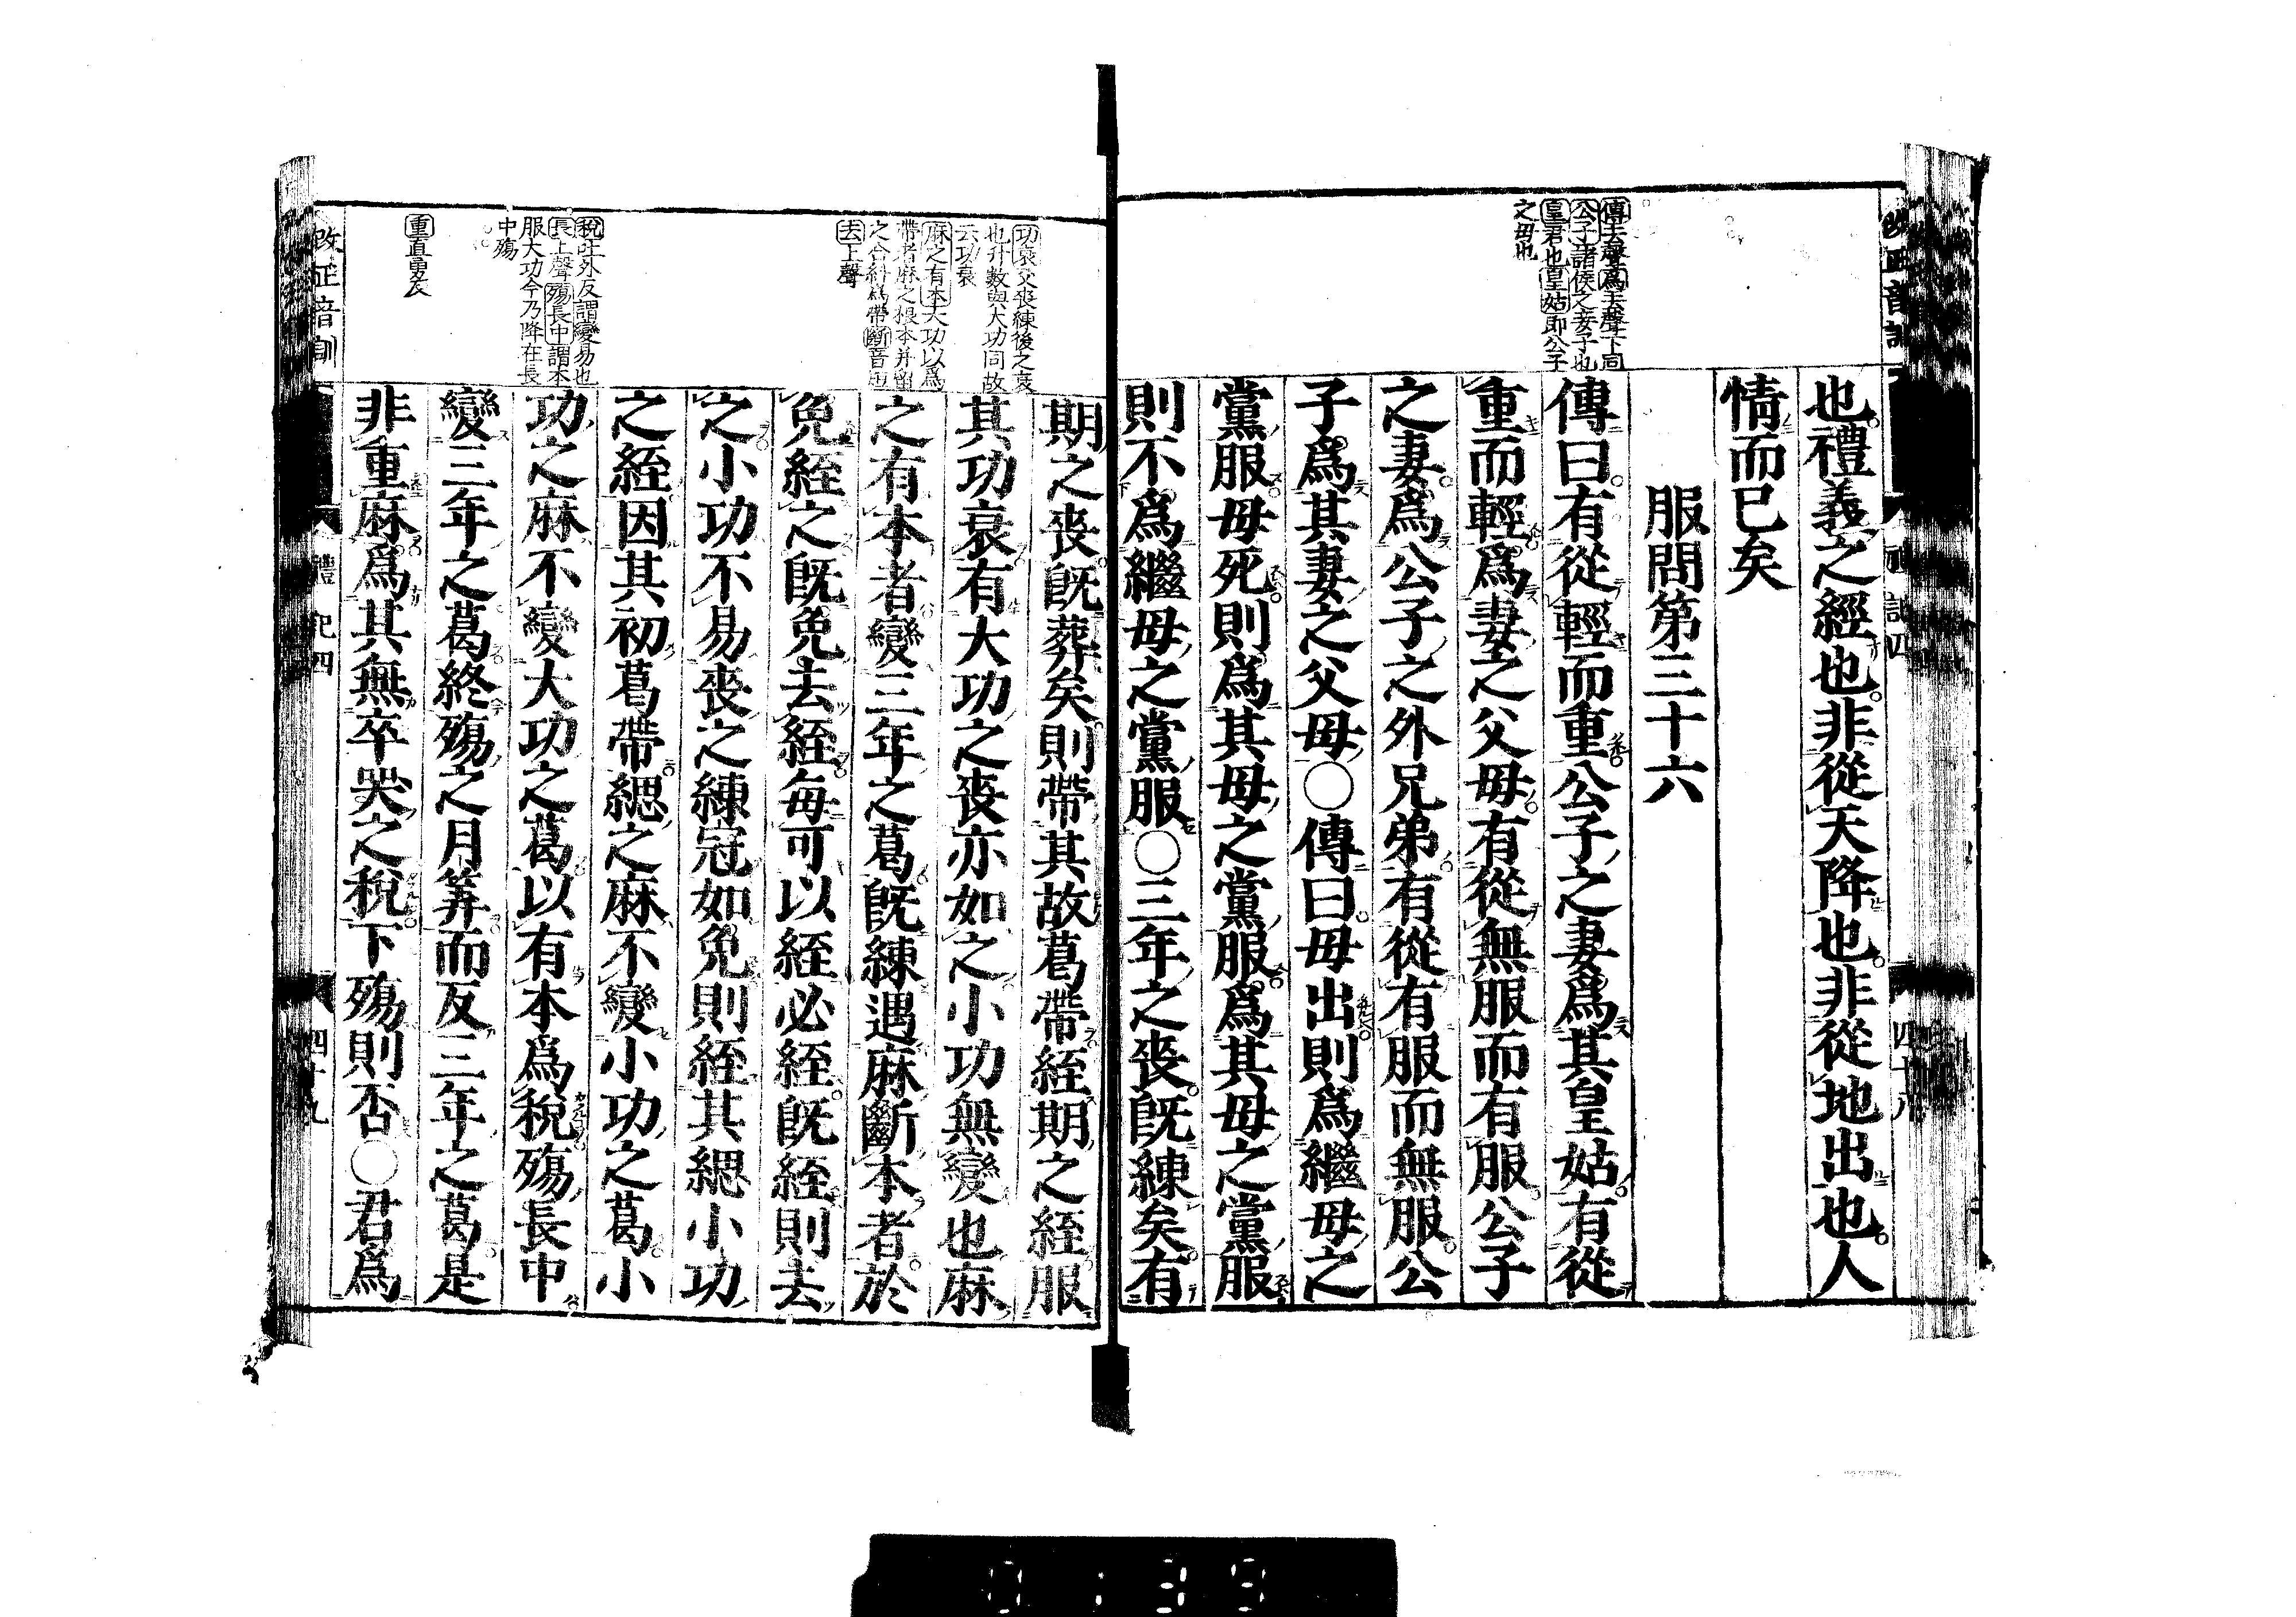 傳去聲爲去聲下同
公子諸侯之妾子也
皇君也皇姑即公子
之母也
也禮義之經也非從天降也非從地出也人
情而已矣
服問第三十六
傳曰有從輕而重公子之妻爲其皇姑有從
重而輕爲妻之父母有從無服而有服公子
之妻爲公子之外兄弟有從有服而無服公
子爲其妻之父母○傳曰母出則爲繼母之
黨服母死則爲其母之黨服爲其母之黨服
則不爲繼母之黨服○三年之喪既練矣有
功衰父喪練後之衰
也升數與大功同故
云功衰
麻之有本大功以爲
帶者麻之根本并留
之合糾爲帶斷音短
去上聲
稅吐外反謂變易也
長上聲殤長中謂本
服大功今乃降在長
中殤
重直勇反
期之喪既葬矣則帶其故葛帶絰期之絰服
其功衰有大功之喪亦如之小功無變也麻
之有本者變三年之葛既練遇麻斷本者於
免絰之既免去絰每可以絰必絰既絰則去
之小功不易喪之練冠如免則絰其緦小功
之絰因其初葛帶緦之麻不變小功之葛小
功之麻不變大功之葛以有本爲稅殤長中
變三年之葛終殤之月筭而反三年之葛是
非重麻爲其無卒哭之稅下殤則否○君爲
改正音訓
禮記四
四十九